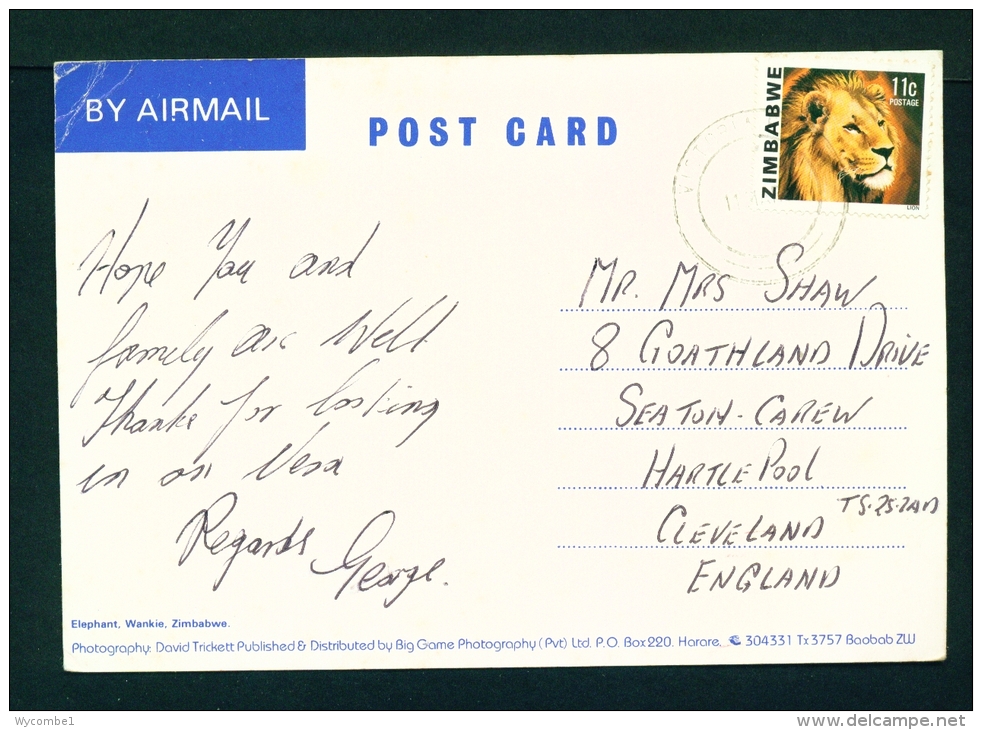 BY AIRMAIL
POST CARD
ZIMBABWE
11c
POSTAGE
LION
Hope You and
family are Well
Thanks for looking
in on Vera
Regards
George.
MR. MRS SHAW
8 GOATHLAND DRIVE
SEATON-CAREW
HARTLEPOOL
CLEVELAND TS.25.2AD
ENGLAND
Elephant, Wankie, Zimbabwe.
Photography: David Trickett Published & Distributed by Big Game Photography (Pvt) Ltd. P.O. Box 220. Harare. 304331 Tx 3757 Baobab ZW
Wycombe1
www.delcampe.net